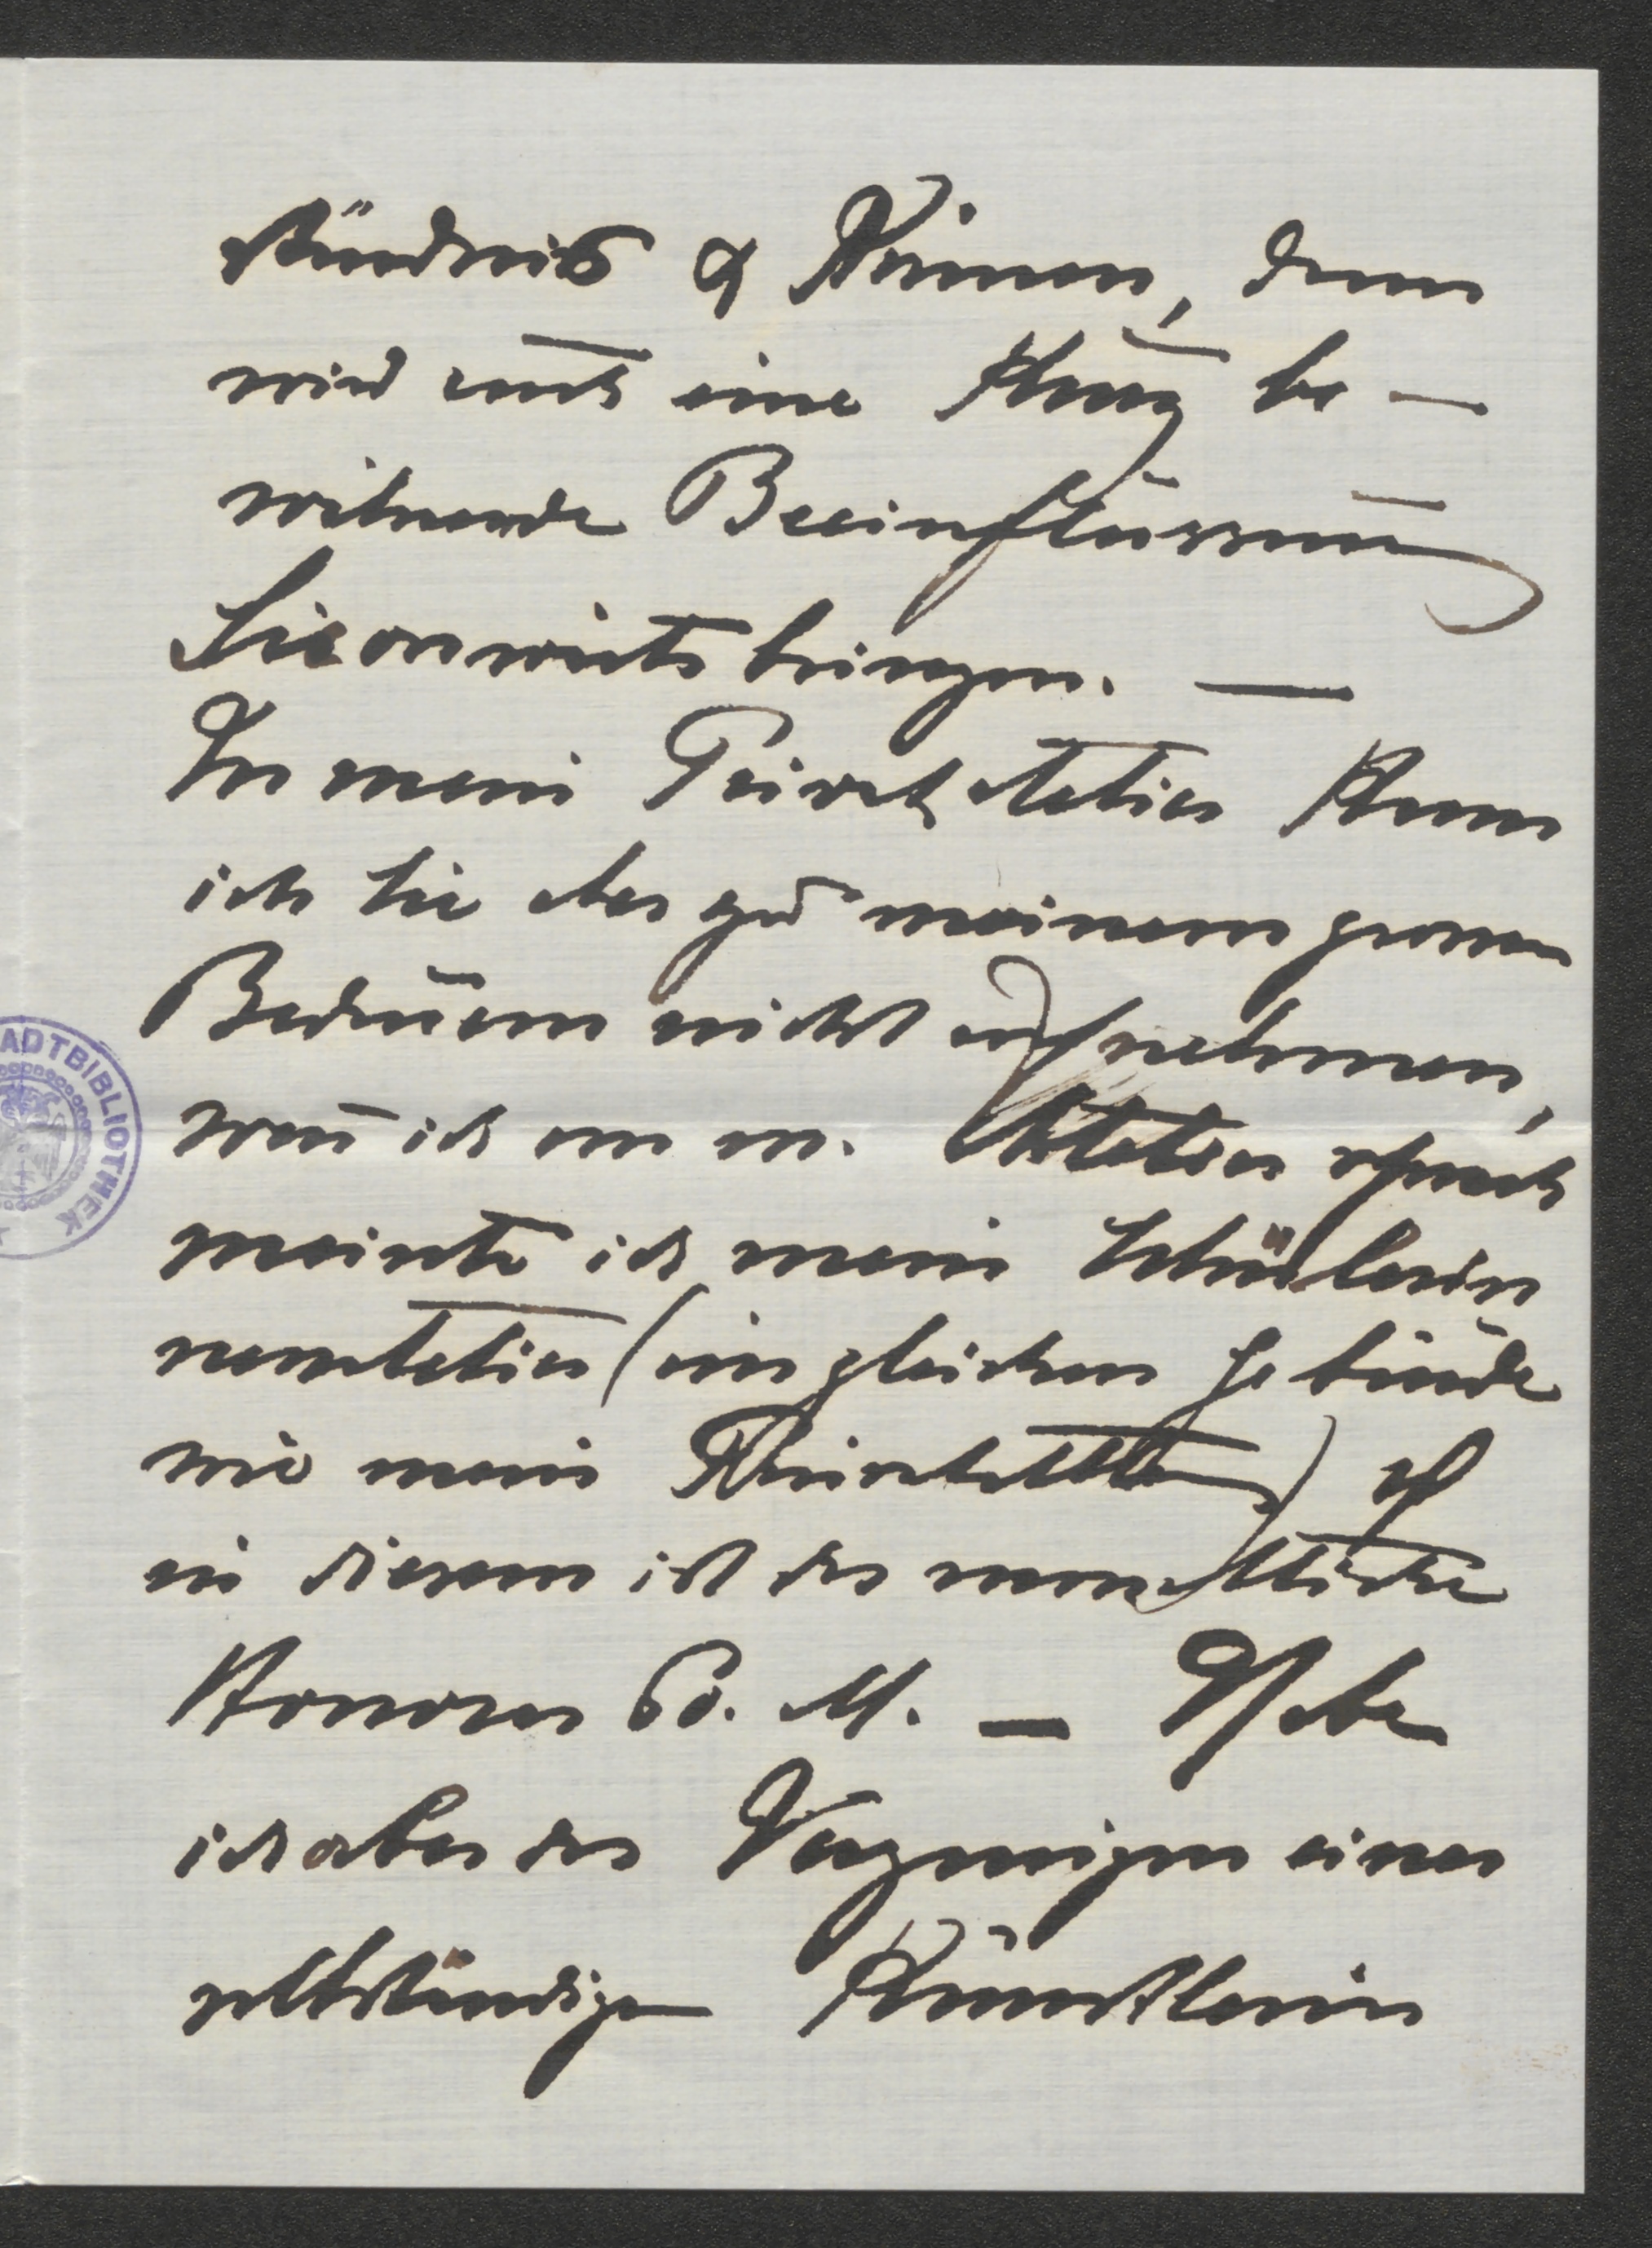 ständnis & Können, dann
wird auch eine klug be-
wilnende Beeinflussung
Sie vorwärts bringen. —
In mein Privatatelier kann
ich Sie aber zu meinem grossen
Bedauern nicht aufnehmen,
wenn ich von m. Atelier sprach
meinte ich mein Schülerin
nenatelier (im gleichen Gebäude
wie mein Privatatelier) &
in diesem ist das monatliche
Honorar 60. M. — Habe
ich aber das Vergnügen einer
selbständigen Künstlerin
ADTBIBLIOTHEK